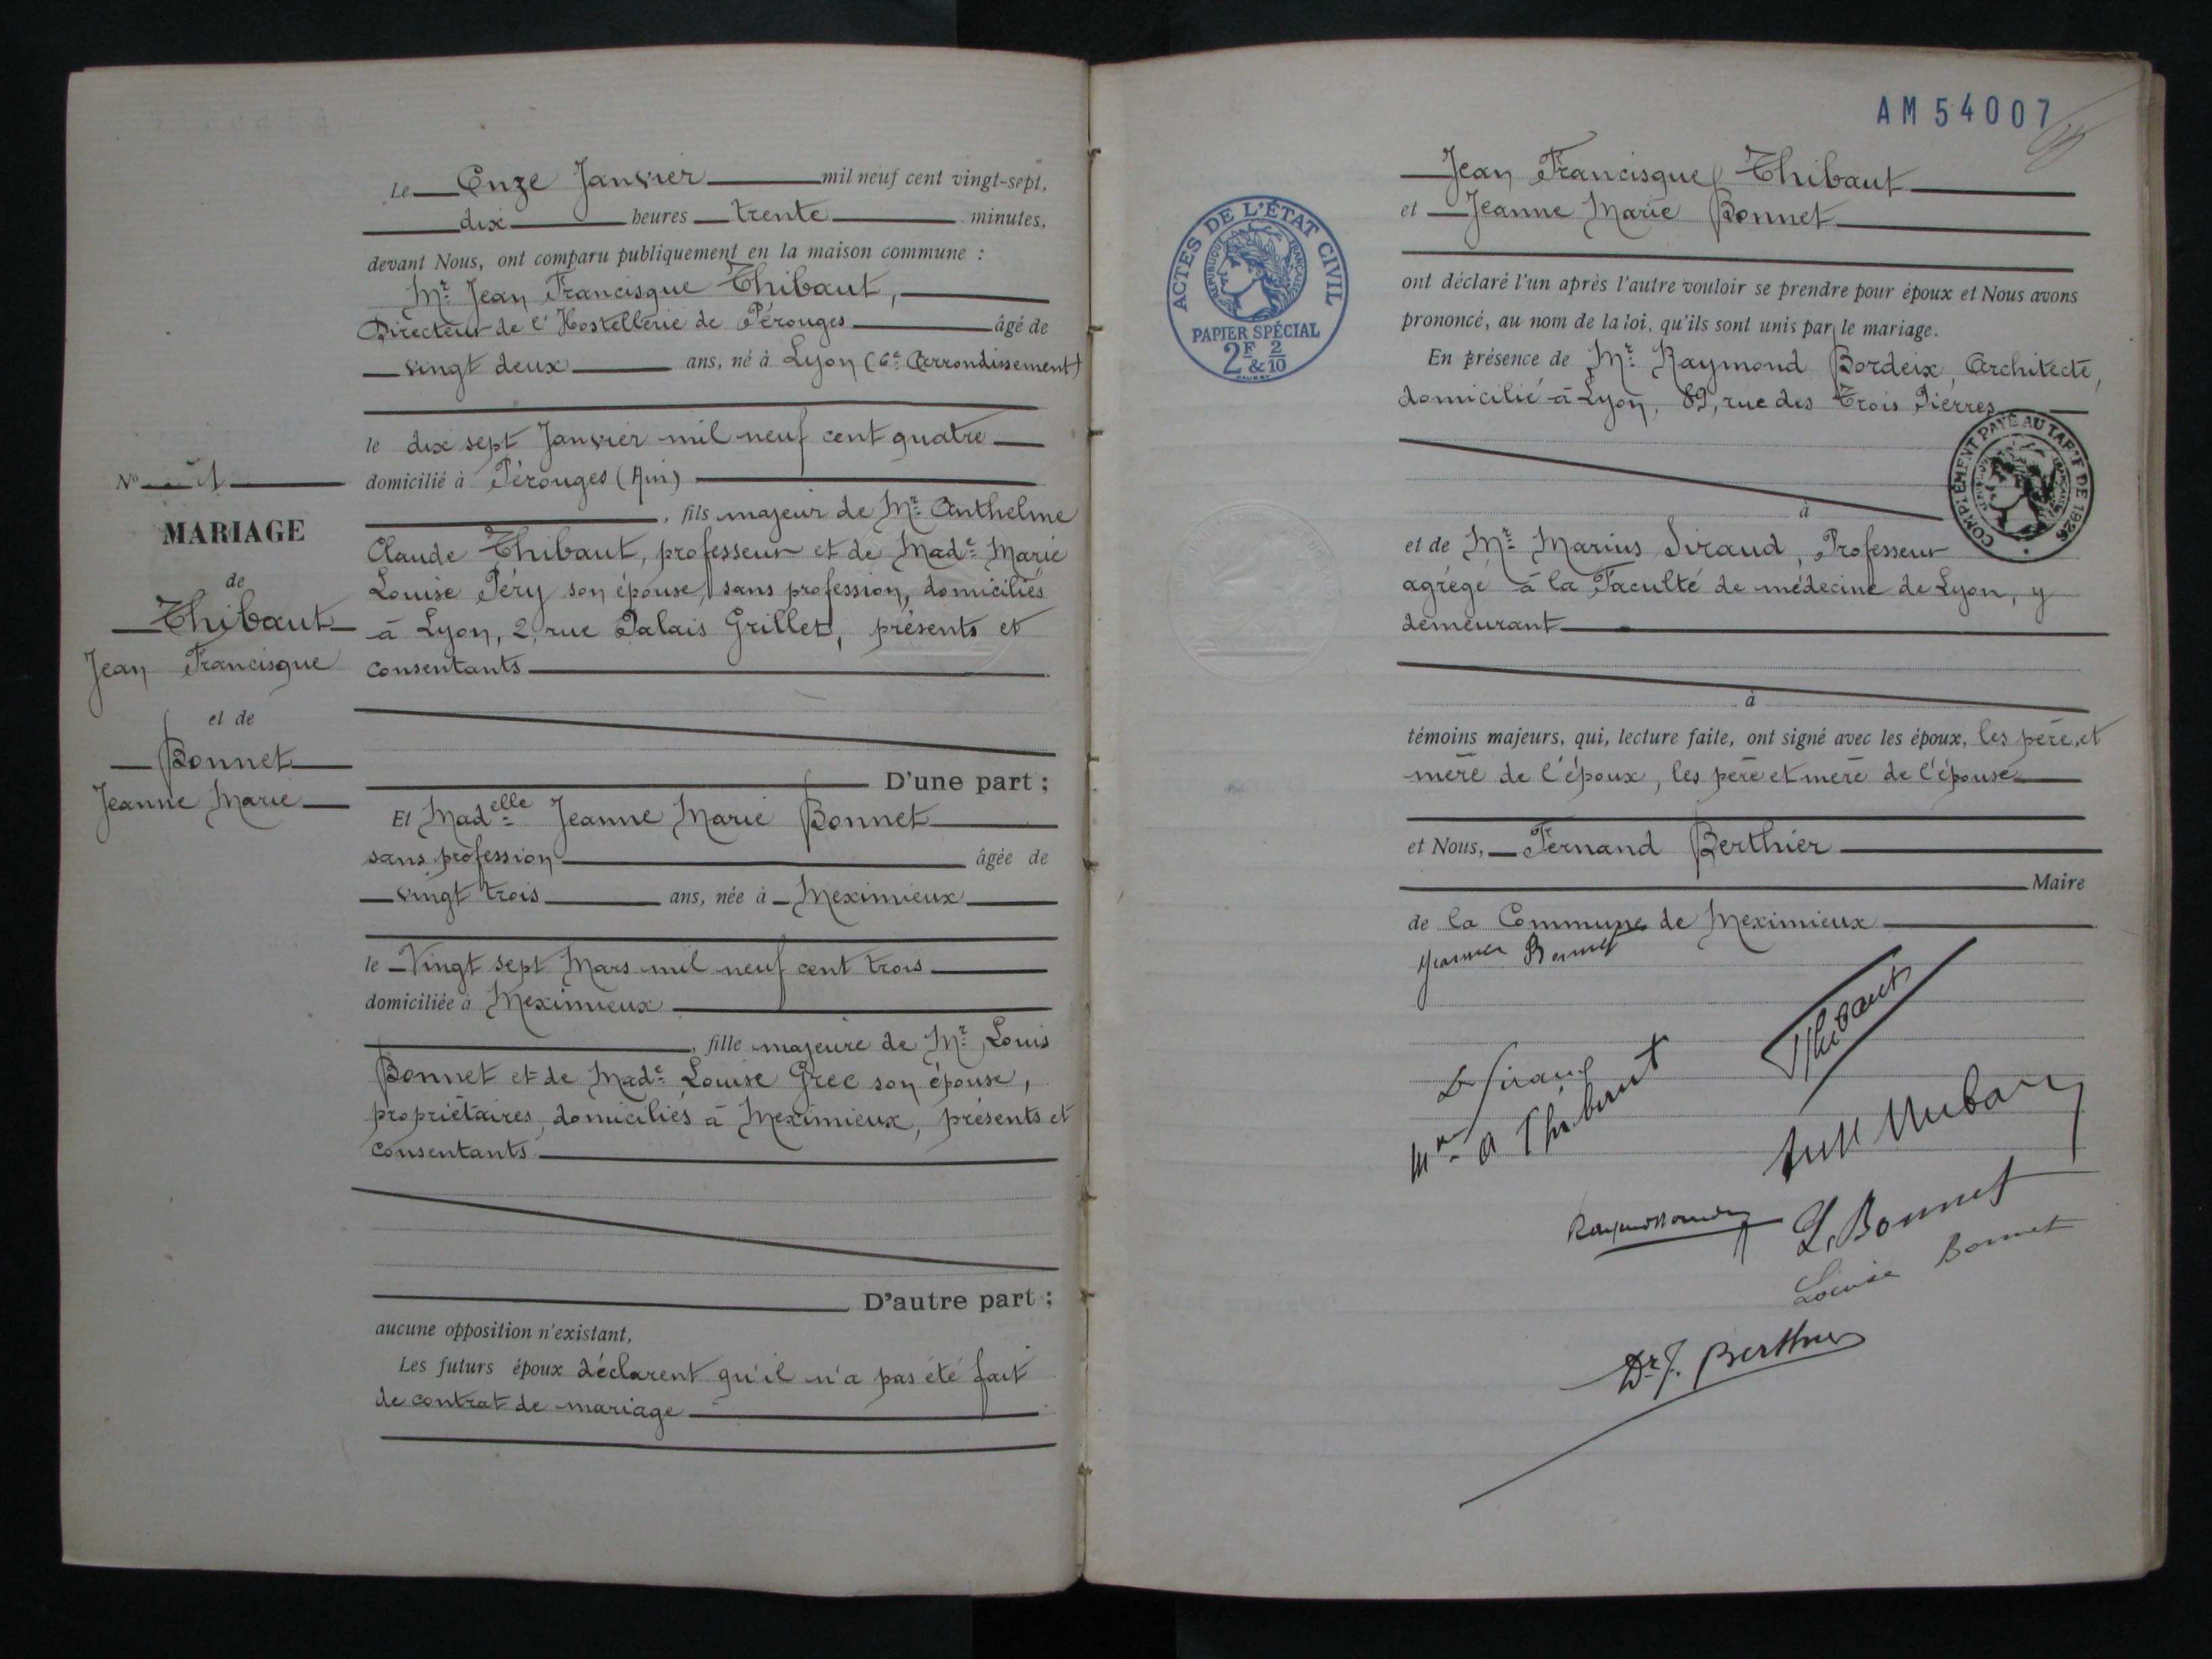 Le Onze Janvier mil neuf cent vingt-sept,
dix heures trente minutes,
devant Nous, ont comparu publiquement en la maison commune :
Mr Jean Francisque Thibaut,
Directeur de l'Hostellerie de Pérouges âgé de
vingt deux ans, né à Lyon (6e Arrondissement)
le dix sept Janvier mil neuf cent quatre
domicilié à Pérouges (Ain)
, fils majeur de Mr Anthelme
Claude Thibaut, professeur et de Made Marie
Louise Péry son épouse, sans profession, domiciliés
à Lyon, 2, rue Palais Grillet, présents et
consentants
D'une part ;
Et Madelle Jeanne Marie Bonnet
sans profession âgée de
vingt trois ans, née à Meximieux
le Vingt sept Mars mil neuf cent trois
domiciliée à Meximieux
, fille majeure de Mr Louis
Bonnet et de Made Louise Grec son épouse,
propriétaires, domiciliés à Meximieux, présents et
consentants
D'autre part ;
aucune opposition n'existant,
Les futurs époux déclarent qu'il n'a pas été fait
de contrat de mariage
No 1
MARIAGE
de
Thibaut
Jean Francisque
et de
Bonnet
Jeanne Marie
AM 54007
Jean Francisque Thibaut
et Jeanne Marie Bonnet
ont déclaré l'un après l'autre vouloir se prendre pour époux et Nous avons
prononcé, au nom de la loi, qu'ils sont unis par le mariage.
En présence de Mr Raymond Bordeix, Architecte,
domicilié à Lyon, 89, rue des Trois Pierres
à
et de Mr Marius Siraud, Professeur
agrégé à la Faculté de médecine de Lyon, y
demeurant
à
témoins majeurs, qui, lecture faite, ont signé avec les époux, les père et
mère de l'époux, les père et mère de l'épouse
et Nous, Fernand Berthier
Maire
de la Commune de Meximieux
Jeanne Bonnet
Thibaut
Dr Siraud
Mme A Thibaut
L. Bonnet
Louise Bonnet
Dr F. Berthier
ACTES DE L'ÉTAT CIVIL
RÉPUBLIQUE FRANÇAISE
PAPIER SPÉCIAL
2F & 2/10
COMPLÉMENT PAYÉ AU TARIF DE 1926